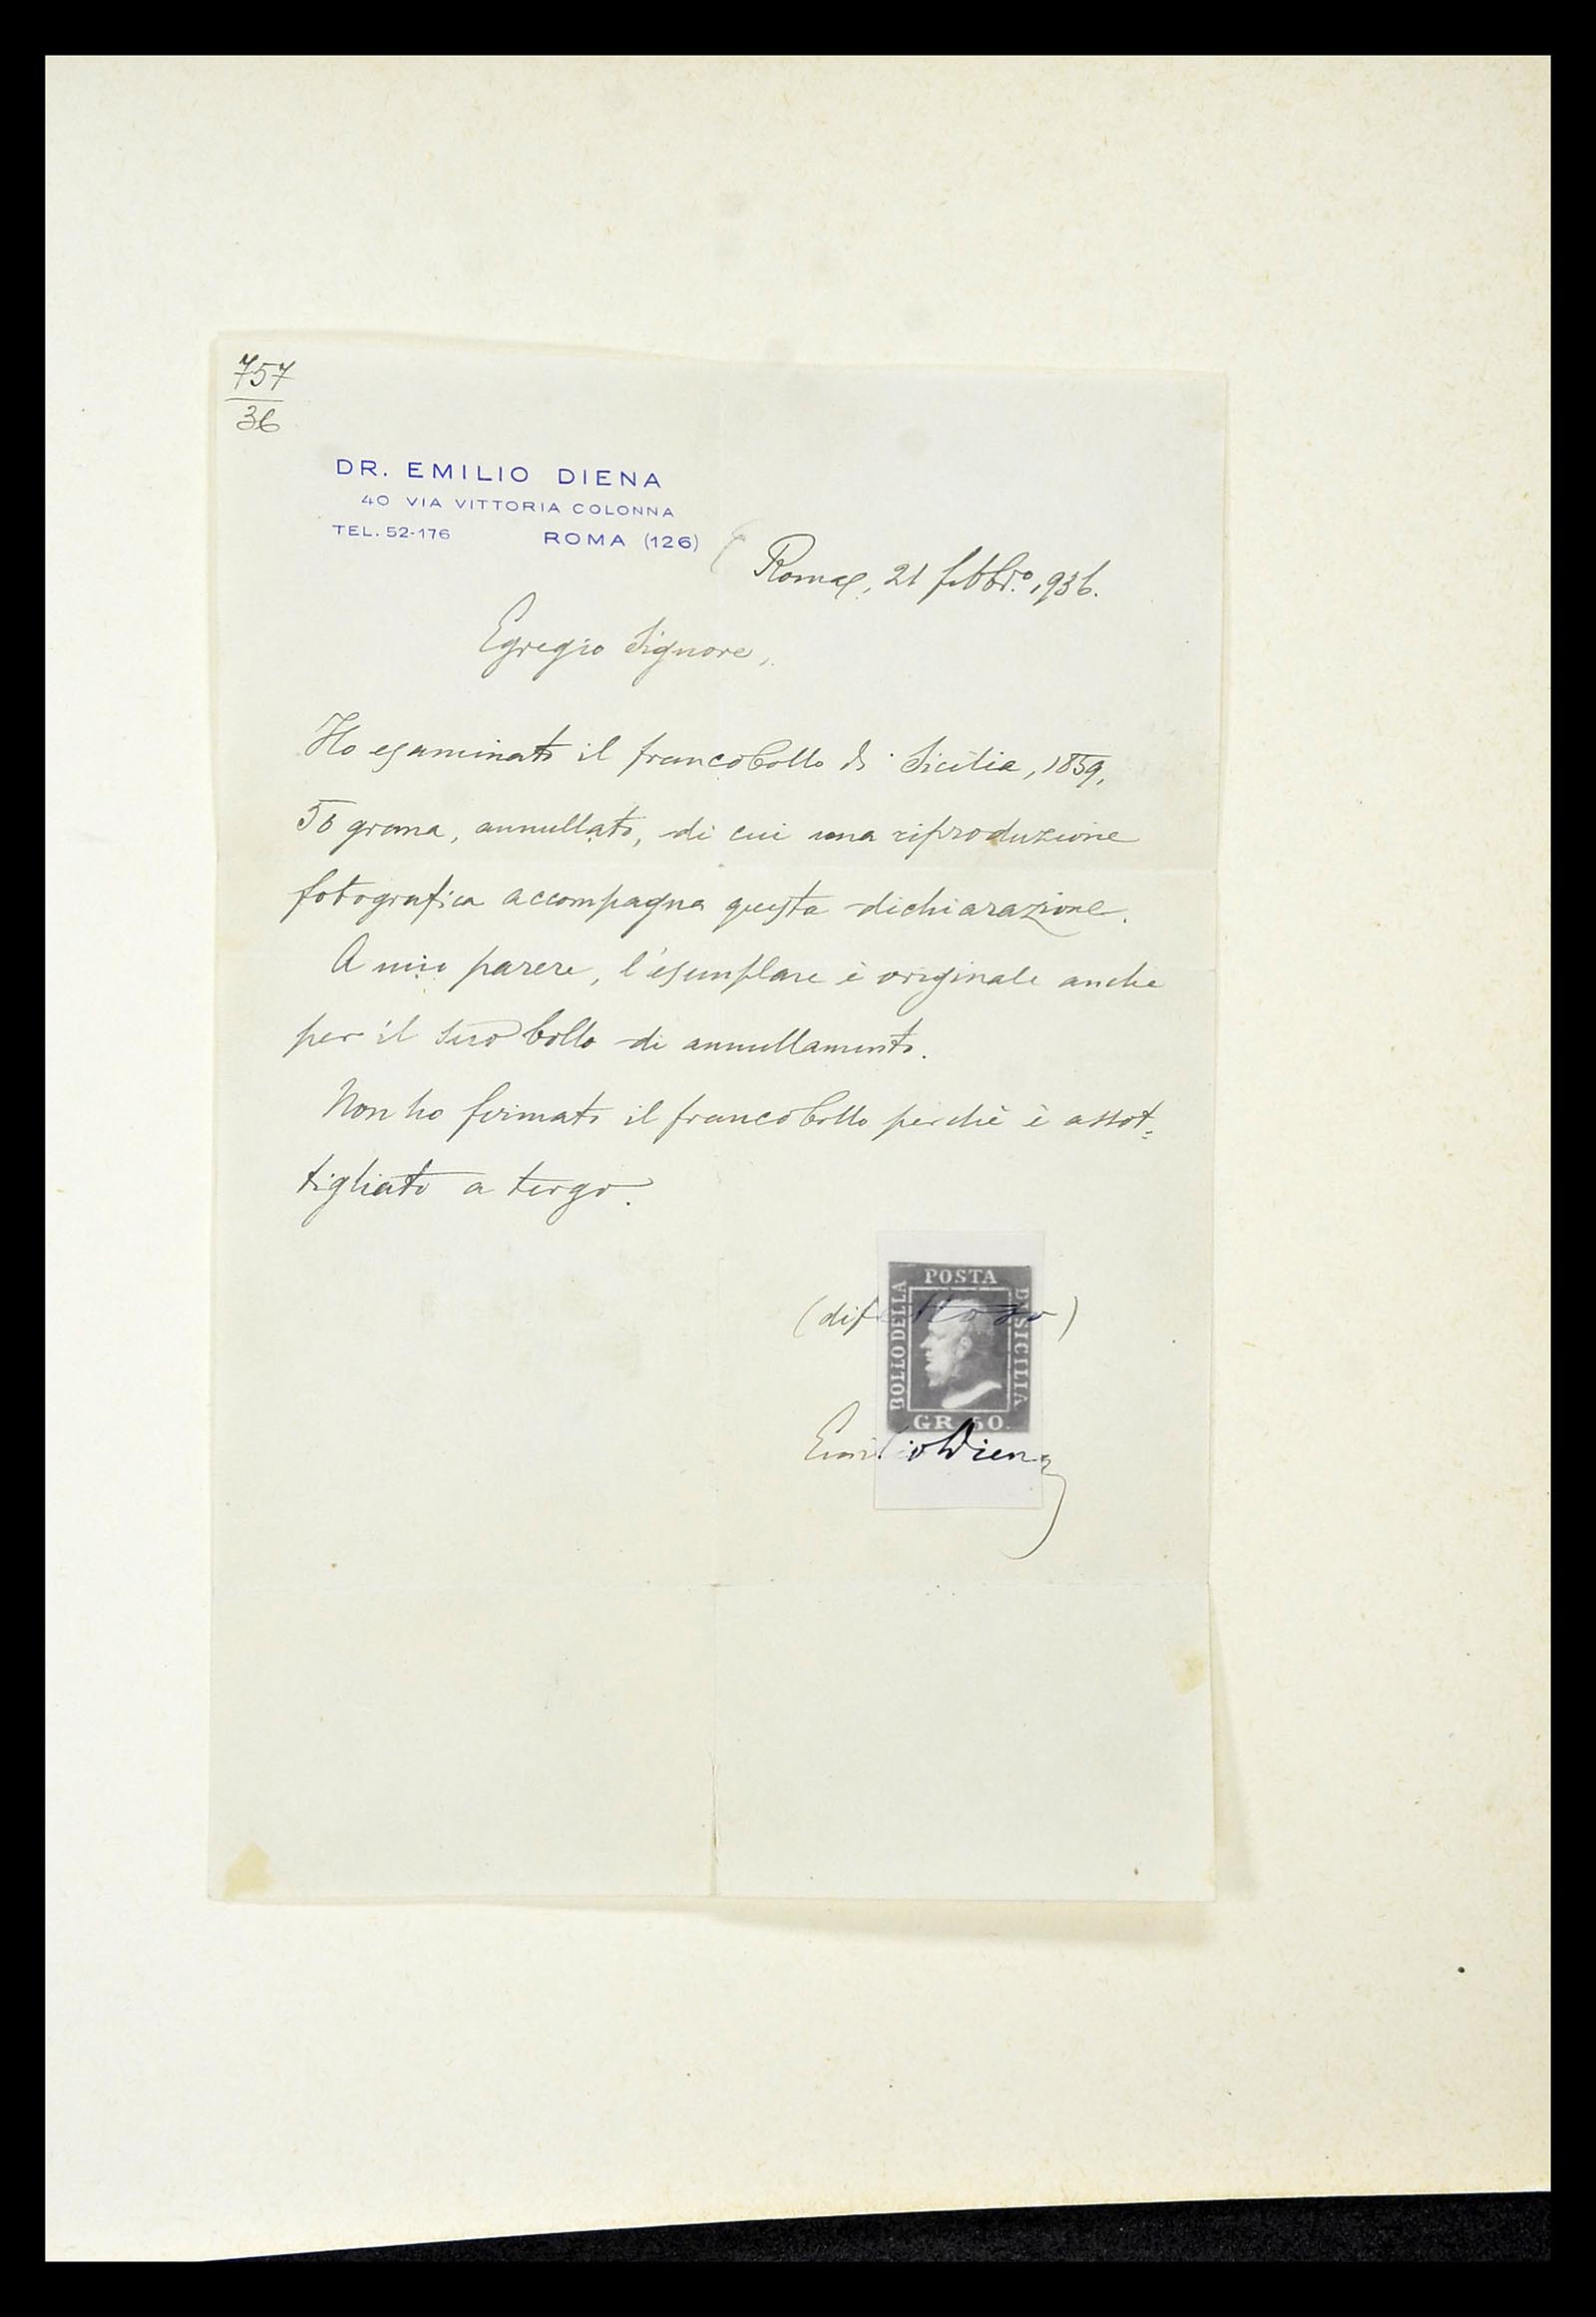 757
36
DR. EMILIO DIENA
40 VIA VITTORIA COLONNA
TEL. 52-176 ROMA (126)
Roma, 21 febbr.º 1936.
Egregio Signore,
Ho esaminato il francobollo di Sicilia, 1859,
50 grana, annullato, di cui una riproduzione
fotografica accompagna questa dichiarazione.
A mio parere, l'esemplare è originale anche
per il suo bollo di annullamento.
Non ho firmato il francobollo perchè è assot=
tigliato a tergo.
POSTA
BOLLO DELLA
DI SICILIA
GR. 50.
(difettoso)
Emilio Diena